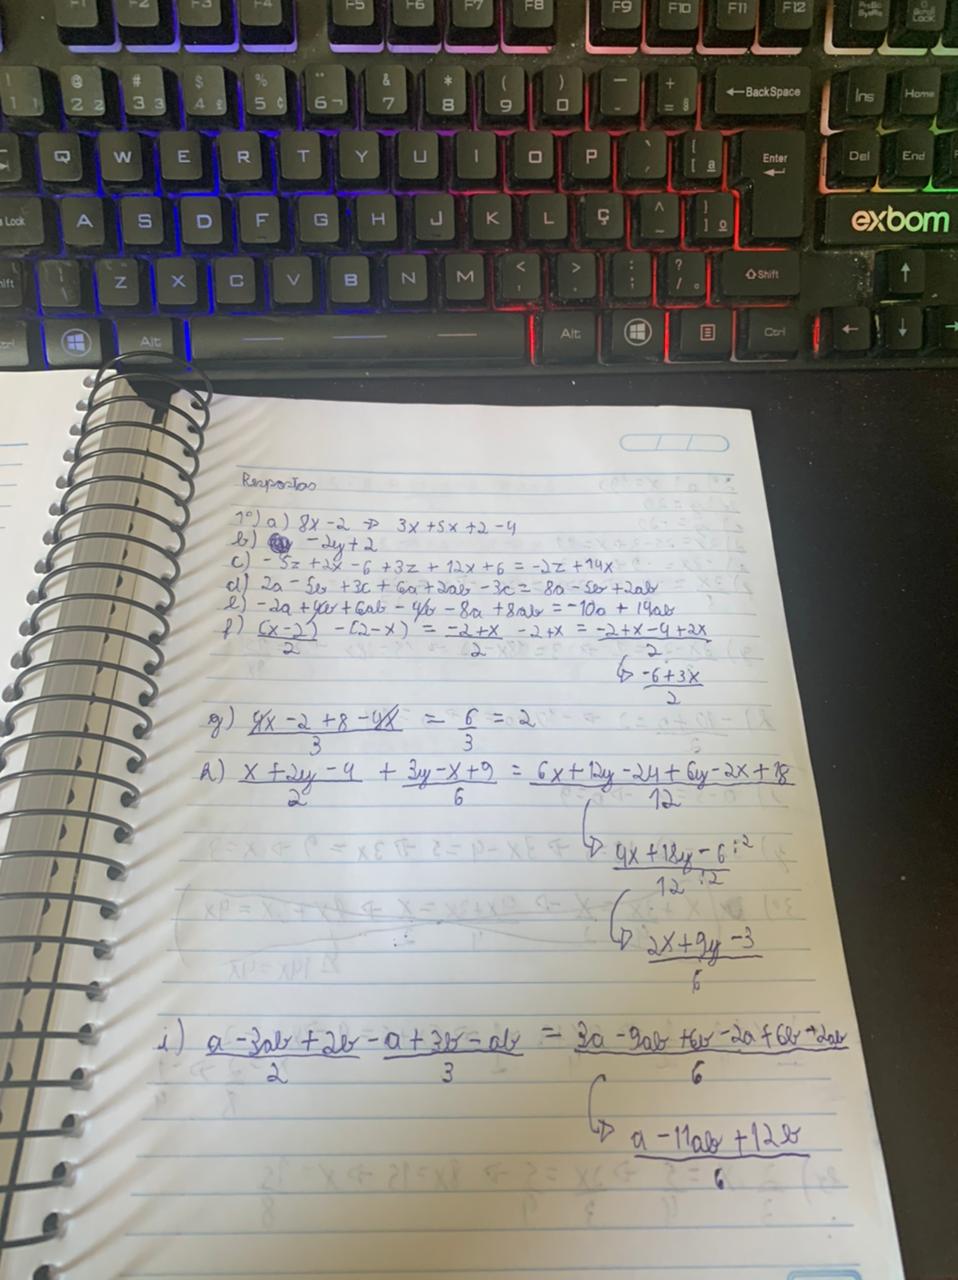 F1 F2 F3 F4 F5 F6 F7 F8 F9 F10 F11 F12 PrtSc SysRq Scroll Lock
! 1 @ 2 2 # 3 3 $ 4 £ % 5 ¢ ¨ 6 ¬ & 7 * 8 ( 9 ) 0 _ - + = § ←BackSpace Ins Home
Q W E R T Y U I O P ` ´ { [ ª Enter Del End
Lock A S D F G H J K L Ç ^ ~ } ] º exbom
Shift | \ Z X C V B N M < , > . : ; ? / ° ⇧Shift ↑
Ctrl Alt Alt Ctrl ← ↓ →
Respostas
1º) a) 8x-2 ⇒ 3x+5x+2-4
b) -2y+2
c) -5z+2x-6+3z+12x+6=-2z+14x
d) 2a-5b+3c+6a+2ab-3c=8a-5b+2ab
e) -2a+4b+6ab-4b-8a+8ab=-10a+14ab
f) (x-2)/2 -(2-x) = -2+x/2 -2+x = -2+x-4+2x/2
↳ -6+3x/2
g) 4x-2+8-4x/3 = 6/3 = 2
h) x+2y-4/2 + 3y-x+9/6 = 6x+12y-24+6y-2x+18/12
↳ 4x+18y-6 :2/12 :2
↳ 2x+9y-3/6
i) a-3ab+2b/2 - a+3b-ab/3 = 3a-9ab+6b-2a+6b+2ab/6
↳ a-11ab+12b/6